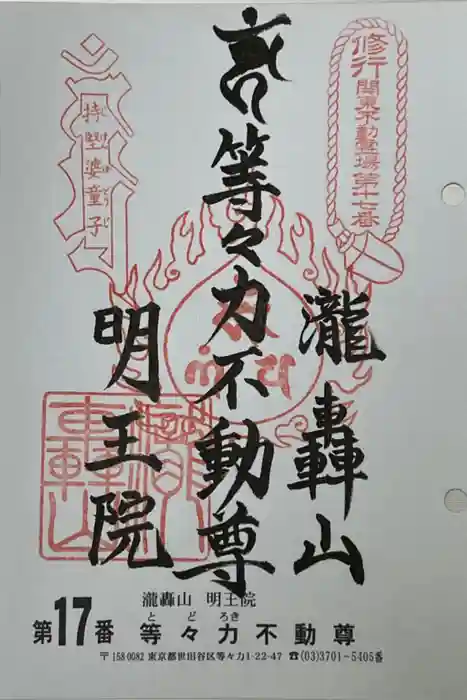 修行関東不動霊場第十七番
持堅婆童子
瀧轟山
等々力不動尊
明王院
瀧轟山
瀧轟山 明王院
とどろき
第17番 等々力不動尊
〒158-0082 東京都世田谷区等々力1-22-47 ☎(03)3701-5405番